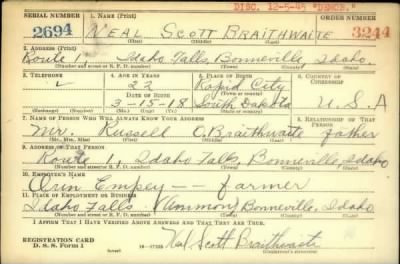 DISC. 12-5-45 "DEMOB."
SERIAL NUMBER 1. NAME (Print) ORDER NUMBER
2694 NEAL SCOTT BRAITHWAITE 3244
(First) (Middle) (Last)
2. ADDRESS (Print)
Route 1 Idaho Falls, Bonneville, Idaho.
(Number and street or R. F. D. number) (Town) (County) (State)
3. TELEPHONE 4. AGE IN YEARS 5. PLACE OF BIRTH 6. COUNTRY OF CITIZENSHIP
22 Rapid City
DATE OF BIRTH (Town or county)
3-15-18 South Dakota U. S. A
(Exchange) (Number) (Mo.) (Day) (Yr.) (State or country)
7. NAME OF PERSON WHO WILL ALWAYS KNOW YOUR ADDRESS 8. RELATIONSHIP OF THAT PERSON
Mr. Russell O. Braithwaite father
(Mr., Mrs., Miss) (First) (Middle) (Last)
9. ADDRESS OF THAT PERSON
Route 1, Idaho Falls, Bonneville, Idaho
(Number and street or R. F. D. number) (Town) (County) (State)
10. EMPLOYER'S NAME
Orin Empey -- farmer
11. PLACE OF EMPLOYMENT OR BUSINESS
Idaho Falls (Ammon) Bonneville, Idaho
(Number and street or R. F. D. number) (Town) (County) (State)
I AFFIRM THAT I HAVE VERIFIED ABOVE ANSWERS AND THAT THEY ARE TRUE.
REGISTRATION CARD
D. S. S. Form 1 Neal Scott Braithwaite